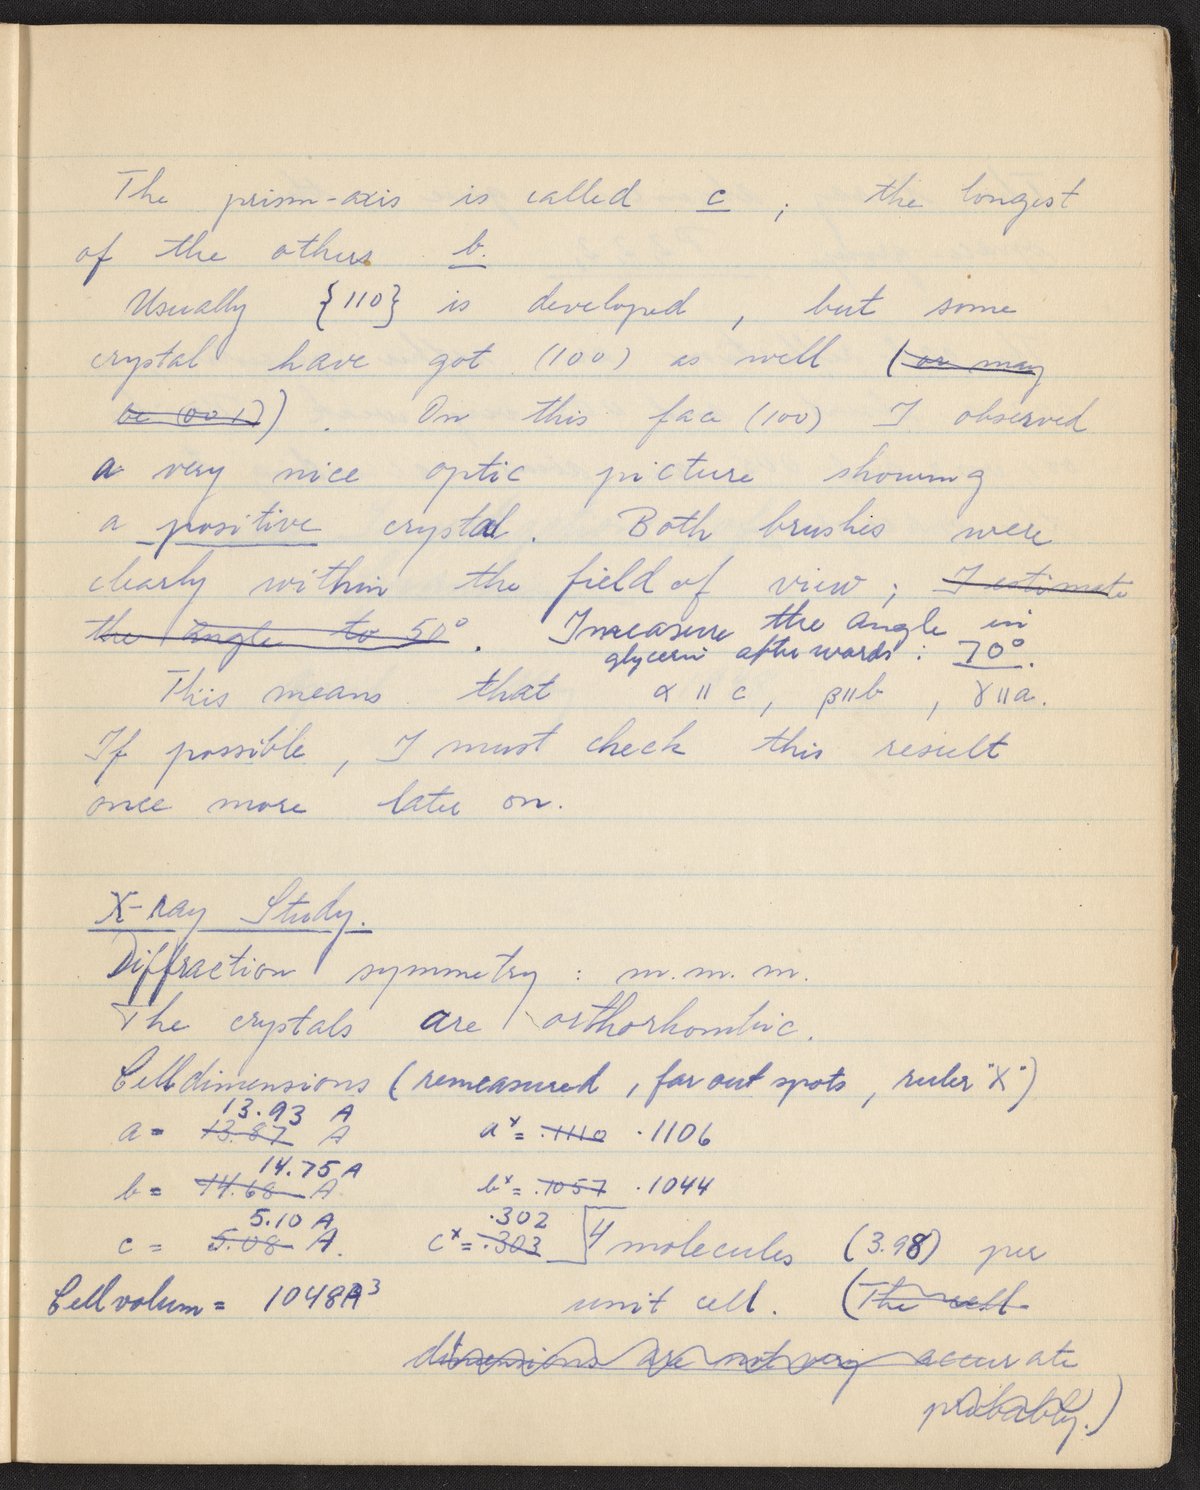 The prism-axis is called c ; the longest
of the others b.
Usually {110} is developed , but some
crystal have got (100) as well (or may
be (001)) . On this face (100) I observed
a very nice optic picture showing
a positive crystal . Both brushes were
clearly within the field of view ; I estimate
the angle to 50° . I measure the angle in
glycerin afterwards : 70°.
This means that α || c , β || b , γ || a.
If possible , I must check this result
once more later on.
X-ray Study.
Diffraction symmetry : m. m. m.
The crystals are orthorhombic.
Cell dimensions (remeasured , far out spots , ruler "X")
13.93 A
a = 13.87 A a* = .1110 .1106
14.75 A
b = 14.68 A b* = .1057 .1044
5.10 A .302
c = 5.08 A. c* = .303 4 molecules (3.98) per
Cell volum = 1048 A³ unit cell. (The cell
dimensions are not very accurate
probably.)